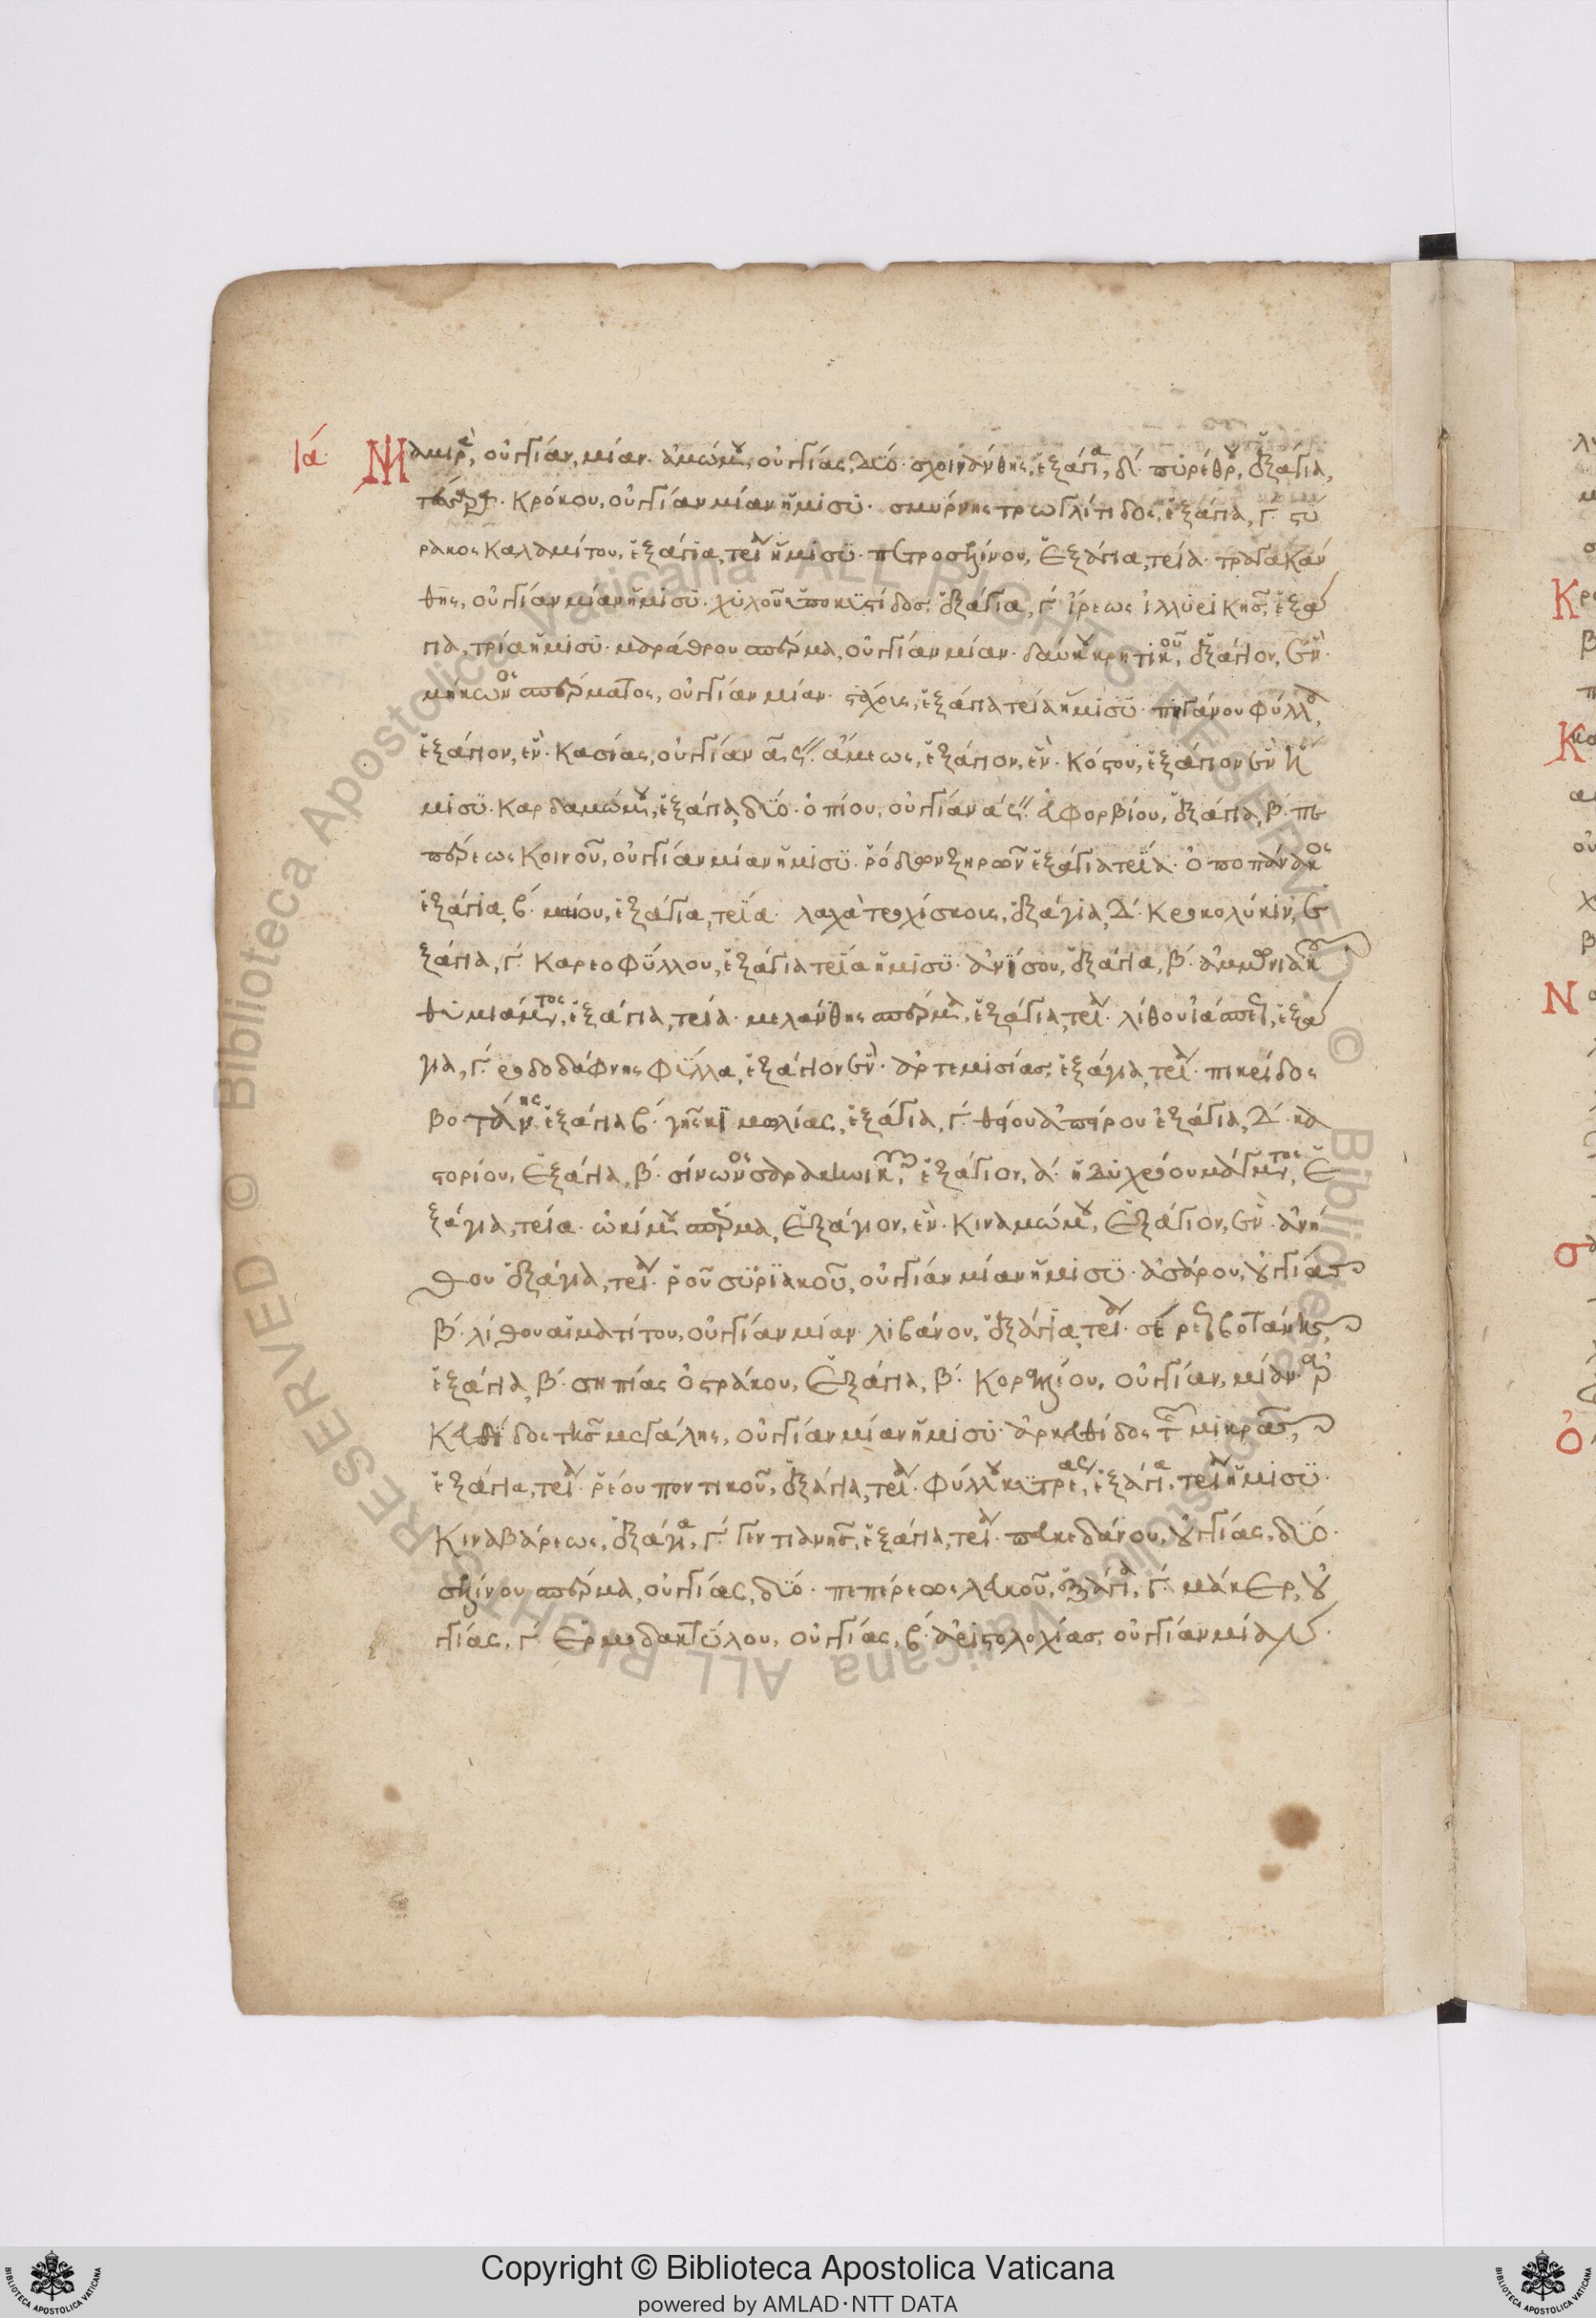 ια΄ Μακιρ, οὐγγίαν, μίαν. ἀμώμου, οὐγγίας, δύο. σχοινάνθης, ἑξάγια, δ΄. πυρέθρου, ἑξάγια,
τέσσαρα. Κρόκου, οὐγγίαν μίαν ἥμισυ. σμύρνης τρωγλίτιδος, ἑξάγια, γ΄. στύ
ρακος Καλαμίτου, ἑξάγια, τρία ἥμισυ. πετροσελίνου, ἑξάγια, τρία. τραγακάν
θης, οὐγγίαν μίαν ἥμισυ. χυλοῦ ὑποκιστίδος, ἑξάγια, γ΄. ἴρεως ἰλλυρικῆς, ἑξά
για, τρία ἥμισυ. μαράθρου σπέρμα, οὐγγίαν μίαν. δαύκου κρητικοῦ, ἑξάγιον, ἕν.
μήκωνος σπέρματος, οὐγγίαν μίαν. στάχος, ἑξάγια τρία ἥμισυ. πηγάνου φύλλα,
ἑξάγιον, ἕν. Κασίας, οὐγγίαν α΄ ς΄΄. ἄμεως, ἑξάγιον, ἕν. Κόστου, ἑξάγιον ἕν ἥ
μισυ. Καρδαμώμου, ἑξάγια, δύο. ὀπίου, οὐγγίαν α΄ ς΄΄. εὐφορβίου, ἑξάγια, β΄. πε
πέρεως Κοινοῦ, οὐγγίαν μίαν ἥμισυ. ῥόδων ξηρῶν ἑξάγια τρία. ὀποπάνακος
ἑξάγια, β΄. μαίου, ἑξάγια, τρία. λαχὰ τροχίσκοις, ἑξάγια, δ΄. Κροκολύκιν, ἑ
ξάγια, γ΄. Καρεοφύλλου, ἑξάγια τρία ἥμισυ. ἀνίσου, ἑξάγια, β΄. ἀμμωνιακοῦ
θυμιάματος, ἑξάγια, τρία. μελάνθης σπέρμα, ἑξάγια, τρία. λίθου ἰάσπεως, ἑξά
για, γ΄. ροδοδάφνης φύλλα, ἑξάγιον ἕν. ἀρτεμισίας, ἑξάγια, τρία. πικρίδος
βοτάνης ἑξάγια β΄. γῆς κιμωλίας, ἑξάγια, γ΄. θείου ἀπύρου ἑξάγια, δ΄. κα
στορίου, ἑξάγια, β΄. σίνωνος σαρακινικοῦ, ἑξάγιον, α΄. ἡδυχρόου μάγματος, ἑ
ξάγια, τρία. ὠκίμου σπέρμα, ἑξάγιον, ἕν. Κιναμώμου, ἑξάγιον, ἕν. ἀνή
θου ἑξάγια, τρία. ῥοῦ συριακοῦ, οὐγγίαν μίαν ἥμισυ. ἀσάρου, οὐγγίας
β΄. λίθου αἱματίτου, οὐγγίαν μίαν. λιβάνου, ἑξάγια, τρία. σέρεως βοτάνης,
ἑξάγια, β΄. σηπίας ὀστράκου, ἑξάγια, β΄. Κοραλίου, οὐγγίαν, μίαν. ἀρ
κευθίδος τῆς μεγάλης, οὐγγίαν μίαν ἥμισυ. ἀρκευθίδος τῆς μικρᾶς,
ἑξάγια, τρία. ῥέου ποντικοῦ, ἑξάγια, τρία. φύλλου κιτρέας, ἑξάγια, τρία ἥμισυ.
Κιναβάρεως, ἑξάγια, γ΄. Γεντιανῆς, ἑξάγια, τρία. πευκεδάνου, οὐγγίας, δύο.
σελίνου σπέρμα, οὐγγίας, δύο. πεπέρεως λευκοῦ, ἑξάγια, γ΄. μάκερ, οὐ
γγίας, γ΄. Ἑρμοδακτύλου, οὐγγίας, β΄. ἀριστολοχίας, οὐγγίαν μίαν.
Copyright © Biblioteca Apostolica Vaticana
powered by AMLAD·NTT DATA